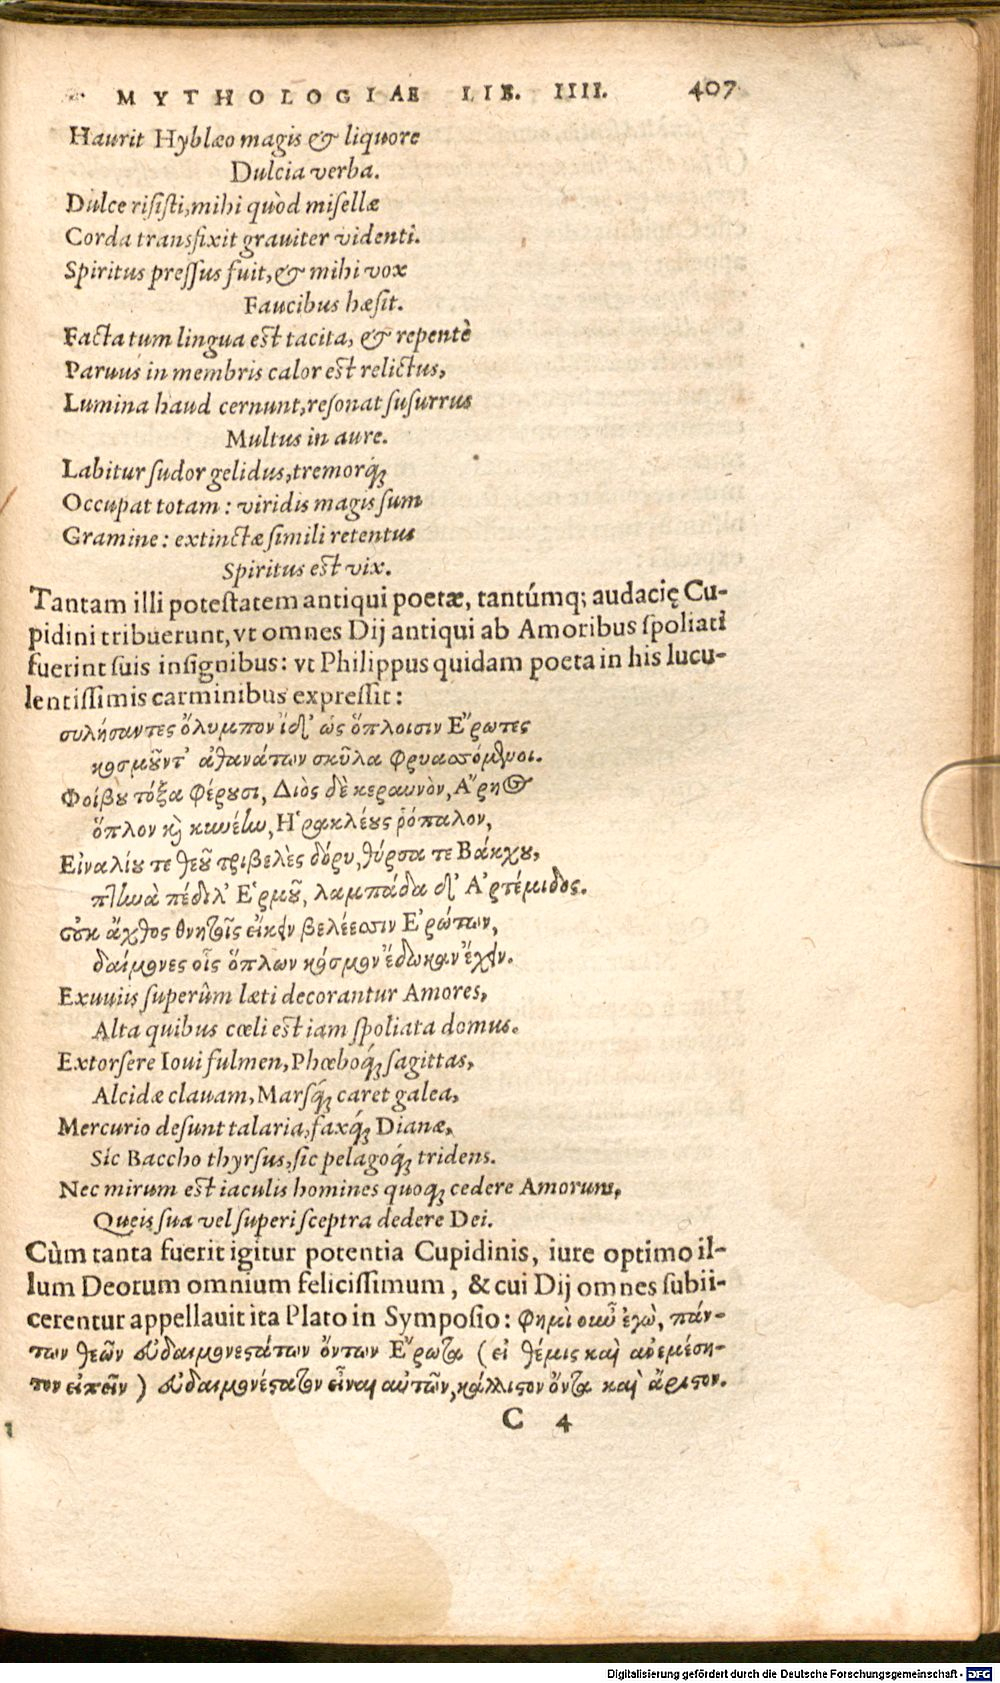 MYTHOLOGIAE LIB. IIII. 407
Haurit Hyblæo magis & liquore
Dulcia verba.
Dulce risisti, mihi quòd misellæ
Corda transfixit grauiter videnti.
Spiritus pressus fuit, & mihi vox
Faucibus hæsit.
Facta tum lingua est tacita, & repentè
Paruus in membris calor est relictus,
Lumina haud cernunt, resonat susurrus
Multus in aure.
Labitur sudor gelidus, tremorq́;
Occupat totam: viridis magis sum
Gramine: extinctæ simili retentus
Spiritus est vix.
Tantam illi potestatem antiqui poetæ, tantúmq; audacię Cu-
pidini tribuerunt, vt omnes Dij antiqui ab Amoribus spoliati
fuerint suis insignibus: vt Philippus quidam poeta in his lucu-
lentissimis carminibus expressit:
συλήσαντες ὄλυμπον ἴδ' ὡς ὅπλοισιν Ἔρωτες
κοσμοῦντ' ἀθανάτων σκῦλα φρυασσόμενοι.
Φοίβου τόξα φέρουσι, Διὸς δὲ κεραυνὸν, Ἄρηος
ὅπλον καὶ κυνέην, Ἡρακλέους ῥόπαλον,
Εἰναλίου τε θεοῦ τριβελὲς δόρυ, θύρσα τε Βάκχου,
πτηνὰ πέδιλ' Ἑρμοῦ, λαμπάδα δ' Ἀρτέμιδος.
οὐκ ἄχθος θνητοῖς εἴκειν βελέεσσιν Ἐρώτων,
δαίμονες οἷς ὅπλων κόσμον ἔδωκαν ἔχειν.
Exuuiis superûm læti decorantur Amores,
Alta quibus cœli est iam spoliata domus.
Extorsere Ioui fulmen, Phœboq́; sagittas,
Alcidæ clauam, Marsq́; caret galea,
Mercurio desunt talaria, faxq́; Dianæ,
Sic Baccho thyrsus, sic pelagoq́; tridens.
Nec mirum est iaculis homines quoq; cedere Amorum,
Queis sua vel superi sceptra dedere Dei.
Cùm tanta fuerit igitur potentia Cupidinis, iure optimo il-
lum Deorum omnium felicissimum, & cui Dij omnes subii-
cerentur appellauit ita Plato in Symposio: φημὶ οὖν ἐγὼ, πάν-
των θεῶν εὐδαιμονεστάτων ὄντων Ἔρωτα (εἰ θέμις καὶ ἀνεμέση-
τον εἰπεῖν) εὐδαιμονέστατον εἶναι αὐτῶν, κάλλιστον ὄντα καὶ ἄριστον.
C 4
Digitalisierung gefördert durch die Deutsche Forschungsgemeinschaft - DFG